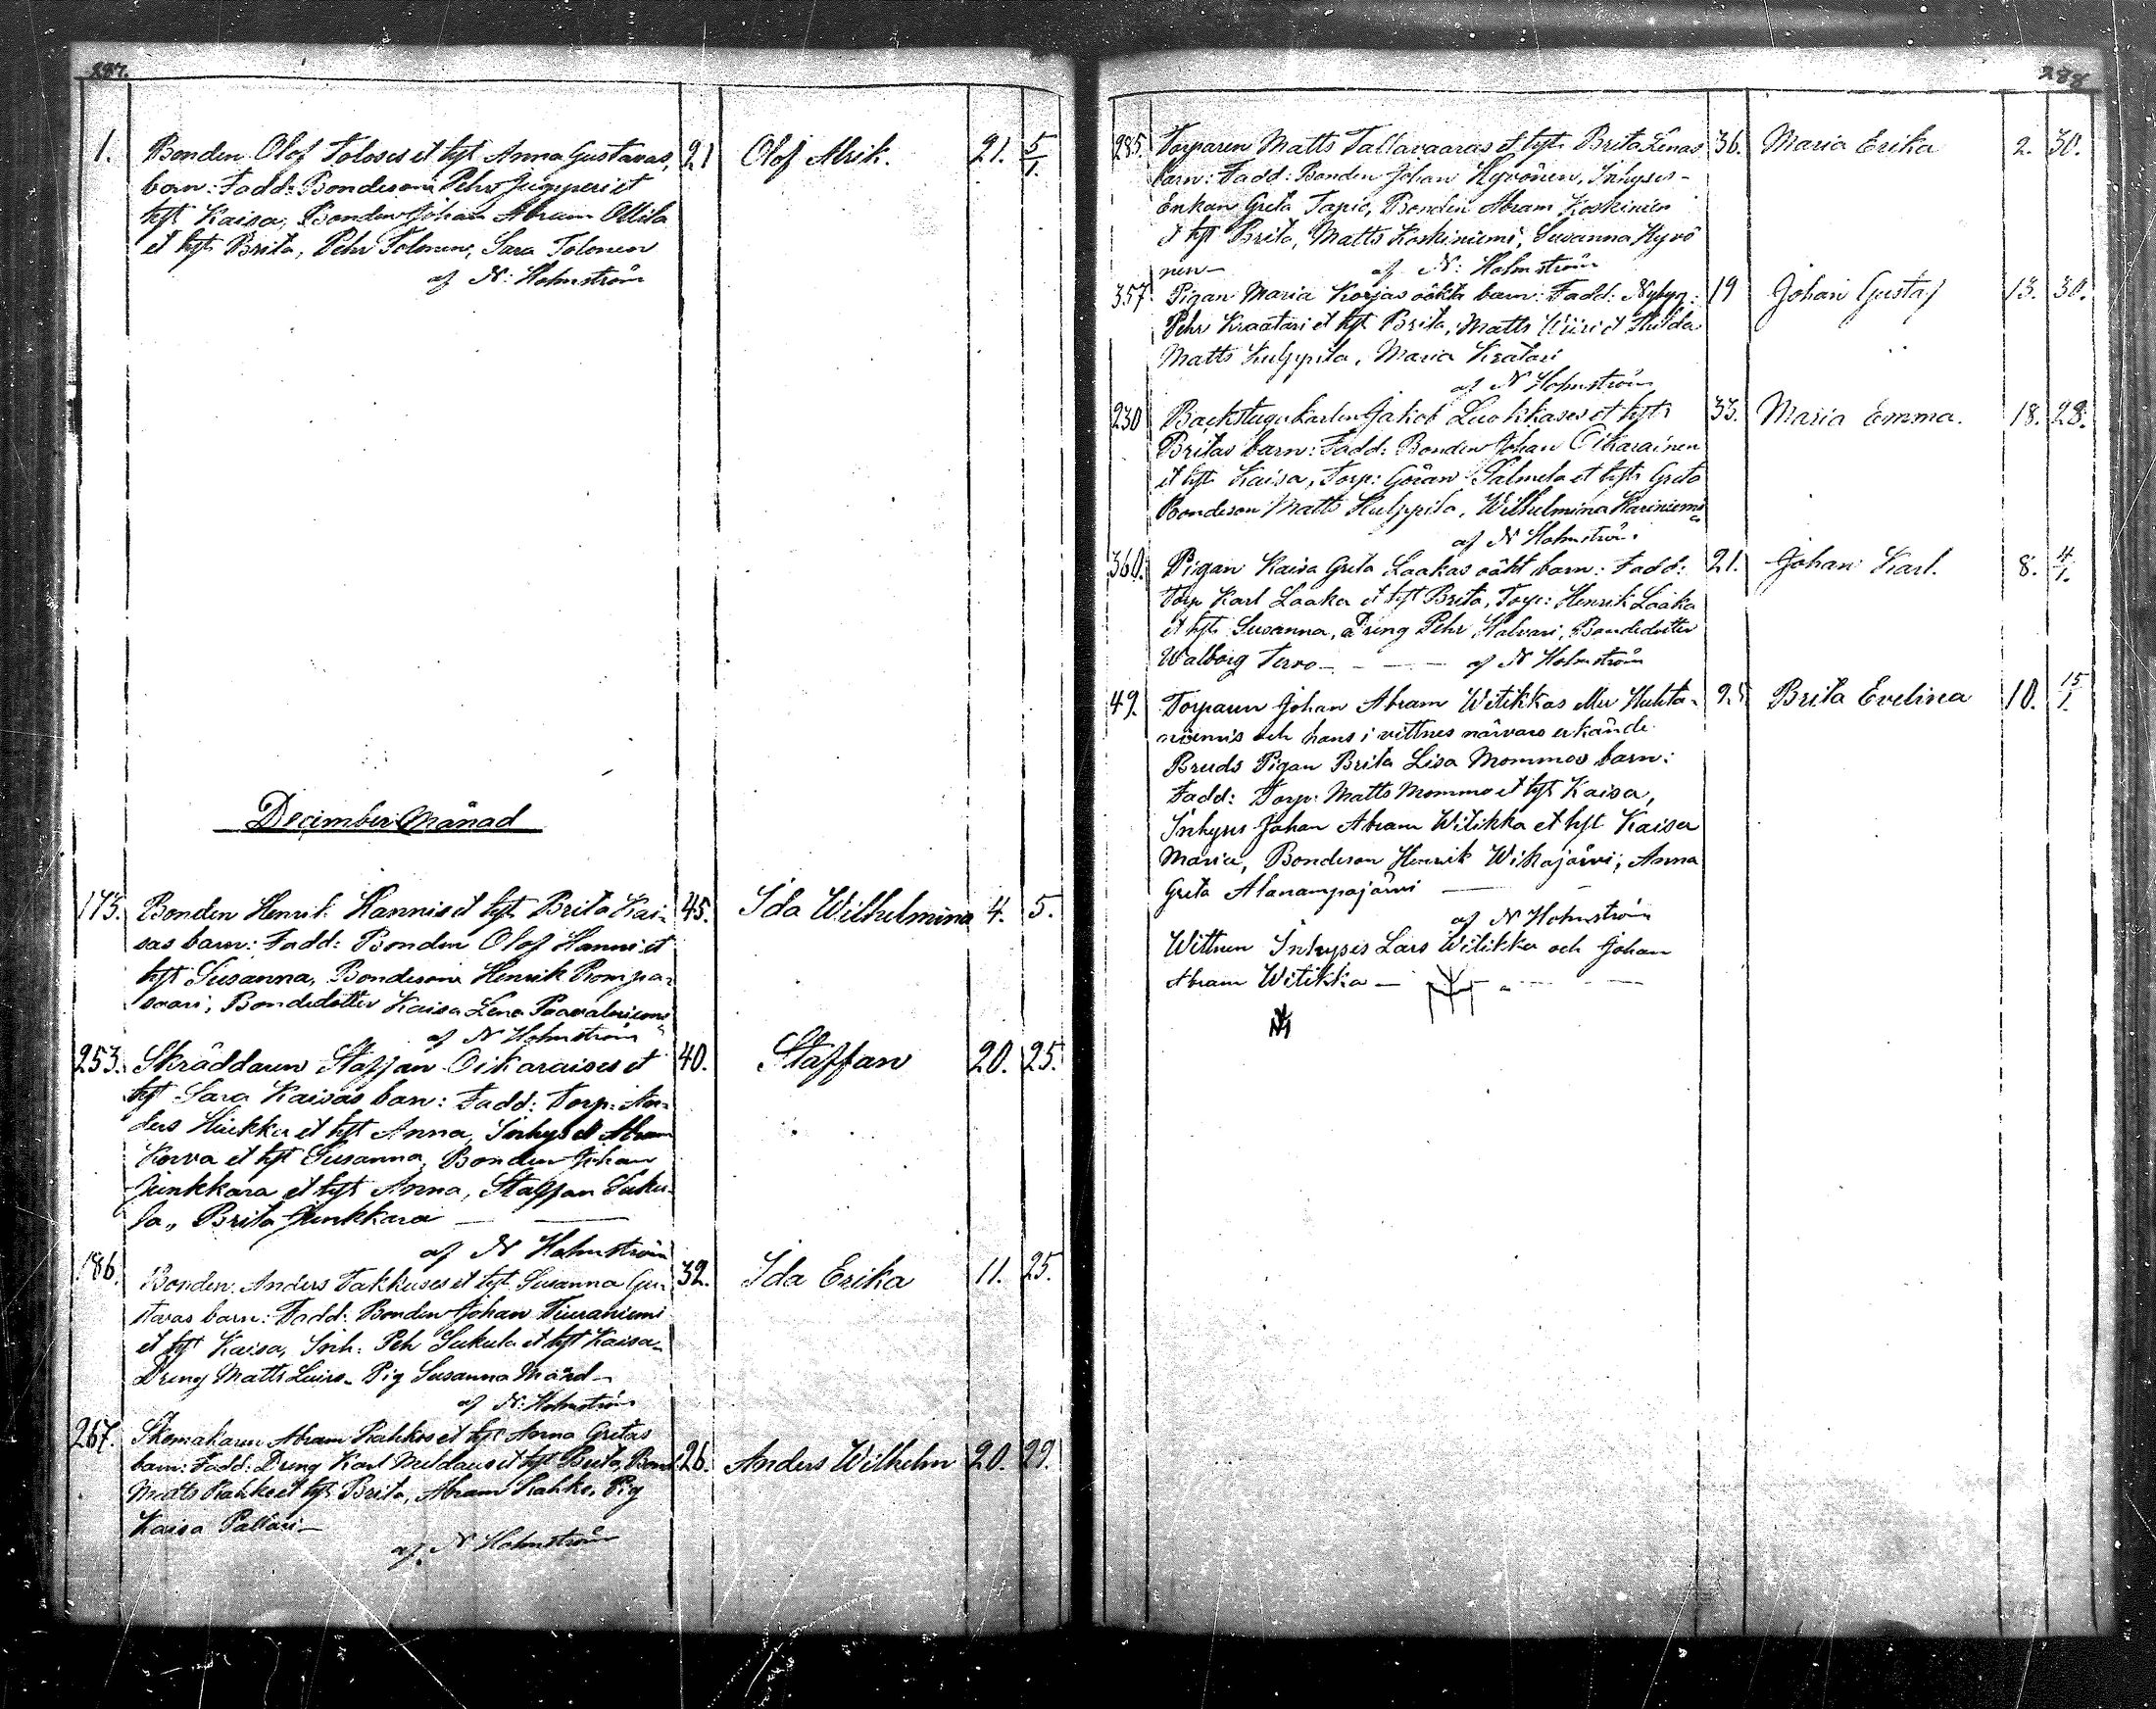 287.
1. Bonden Olof Toloses et hst Anna Gustavas 21 Olof Alrik. 21. 5/1.
barn: Fadd: Bondeson Pehr Jumperi et
hst Kaisa, Bonden Johan Abram Ollila
et hst Brita, Pehr Tolonen, Sara Tolonen
af N: Holmström
December Månad
173. Bonden Henrik Hannis et hst Brita Kai- 45. Ida Wilhelmina 4. 5.
sas barn: Fadd: Bonden Olof Hanni et
hst Susanna, Bondeson Henrik Rompa-
saari, Bondedotter Kaisa Lena Paavalniemi
af N Holmström
253. Skräddaren Staffan Oikaraises et 40. Staffan 20. 25.
hst Sara Kaisas barn: Fadd: Torp: An-
ders Hiukka et hst Anna, Inhys et Abram
Korva et hst Susanna, Bonden Johan
Junkkara et hst Anna, Staffan Suku-
la, Brita Junkkara
af N Holmström
186. Bonden Anders Takkuses et hst Susanna Gu- 32. Ida Erika 11. 25.
stavas barn: Fadd: Bonden Johan Tiuraniemi
et hst Kaisa, Inh: Peh Sukula et hst Kaisa
Dreng Matts Luiro Pig Susanna Mård
af N: Holmström
267. Skomakaren Abram Rahkos et hst Anna Gretas 26. Anders Wilhelm 20. 29.
barn: Fadd: Dreng Karl et hst Brita, Bond:
Matts Rahko et hst Brita, Abram Rahko, Pig
Kaisa Pallari
af N Holmström
288
285. Torparen Matts Tallavaaras et hst Brita Lenas 36. Maria Erika 2. 30.
barn: Fadd: Bonden Johan Hyvönen, Inhyses-
Enkan Greta Tapio, Bonden Abram Koskinien
et hst Brita, Matts Koskiniemi, Susanna Hyvö
nen
af N: Holmström
357. Pigan Maria Korjas oäkta barn: Fadd: Nybyg: 19 Johan Gustaf 13. 30.
Pehr Kraatari et hst Brita, Matts Wiiri et Hulda
Matts Kulppila, Maria Kratari
af N Holmström
230 Backstugukarlen Jakob Luokkases et hst 33. Maria Emma. 18. 28.
Britas barn: Fadd: Bonden Johan Oikarainen
et hst Kaisa, Torp: Göran Salmela et hst Greta
Bondeson Matts Kulppila, Wilhelmina Kariniemi
af N Holmström
360. Pigan Kaisa Greta Laakas oäkt barn: Fadd: 21. Johan Karl. 8. 4/1.
Torp Karl Laaka et hst Brita, Torp: Henrik Laaka
et hst Susanna, Dreng Pehr Halvari, Bondedotter
Walborg Tervo af N Holmström
49. Torparen Johan Abram Witikkas eller Huhta- Brita Evelina 10. 15/1.
niemis och hans i vittnes närvaro erkände
Bruds Pigan Brita Lisa Mommos barn:
Fadd: Torp: Matts Mommo et hst Kaisa,
Inhyses Johan Abram Witikka et hst Kaisa
Maria, Bondeson Henrik Wikajärvi, Anna
Greta Alanampajärvi
af N Holmström
Wittnen Inhyses Lars Witikka och Johan
Abram Witikka